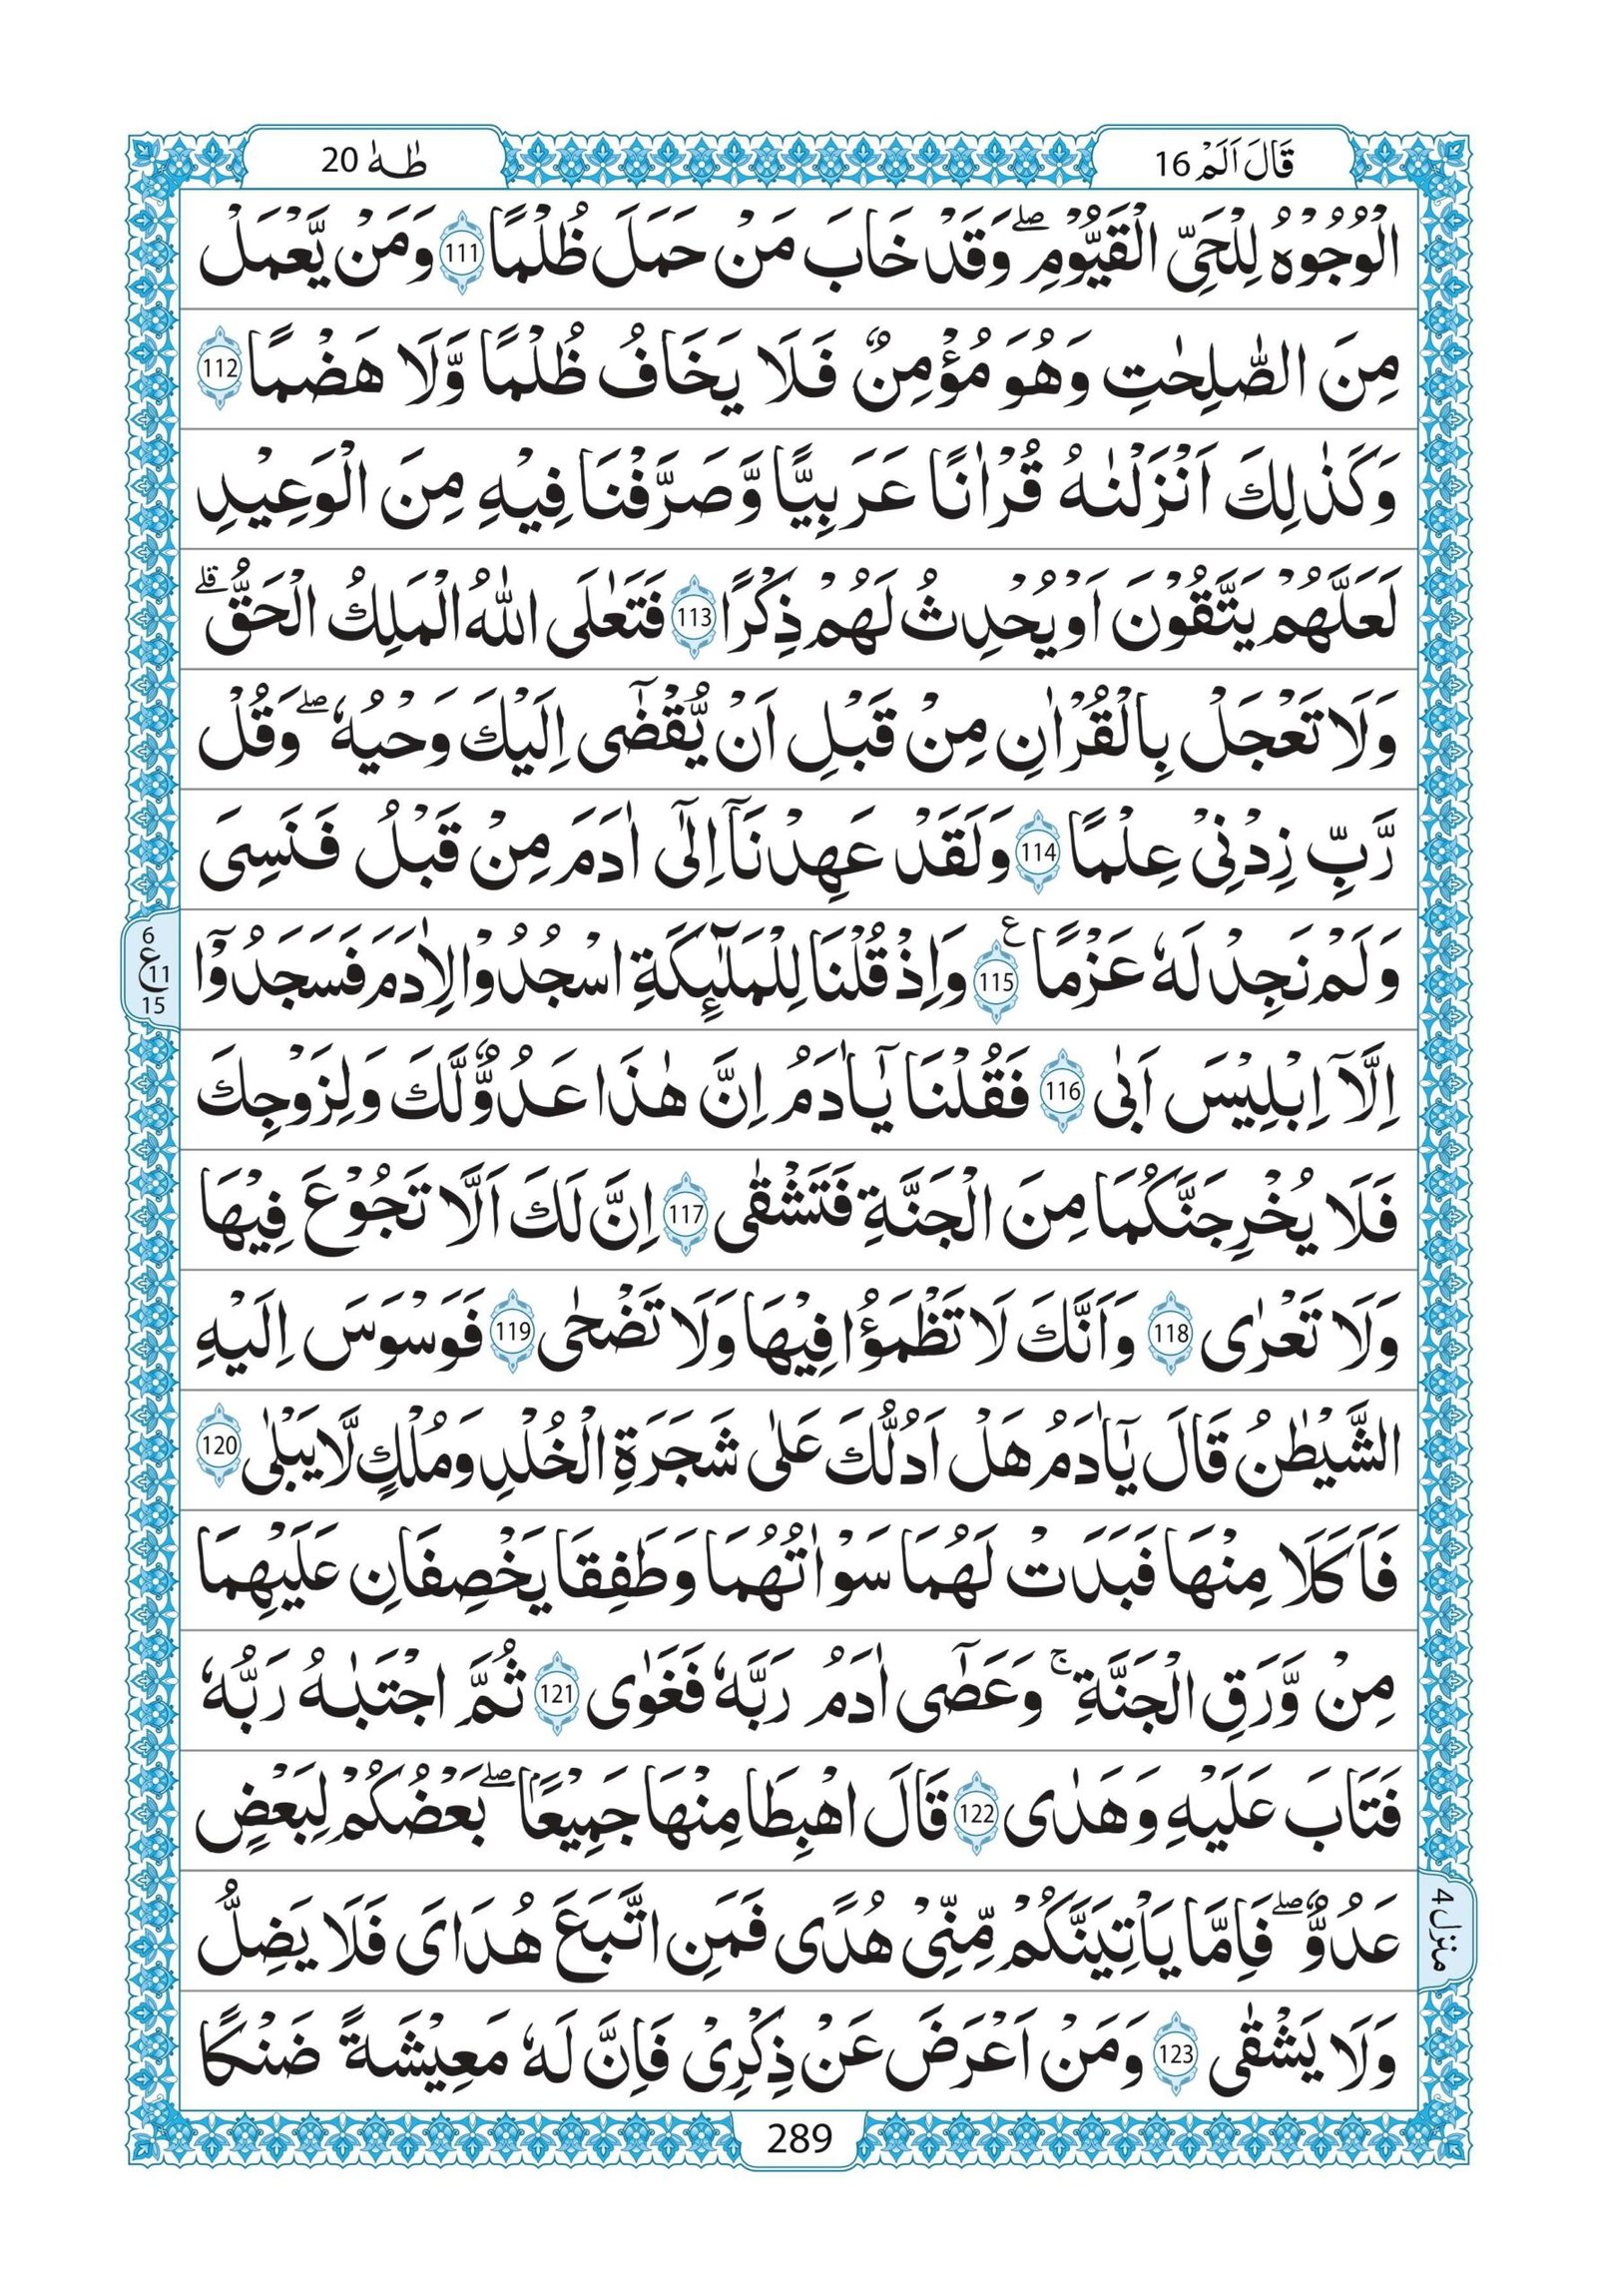 قَالَ اَلَمۡ 16
طٰهٰ 20
الۡوُجُوۡهُ لِلۡحَىِّ الۡقَيُّوۡمِؕۖ وَقَدۡ خَابَ مَنۡ حَمَلَ ظُلۡمًا 111 وَمَنۡ يَّعۡمَلۡ
مِنَ الصّٰلِحٰتِ وَهُوَ مُؤۡمِنٌ فَلَا يَخَافُ ظُلۡمًا وَّلَا هَضۡمًا 112
وَكَذٰلِكَ اَنۡزَلۡنٰهُ قُرۡاٰنًا عَرَبِيًّا وَّصَرَّفۡنَا فِيۡهِ مِنَ الۡوَعِيۡدِ
لَعَلَّهُمۡ يَتَّقُوۡنَ اَوۡ يُحۡدِثُ لَهُمۡ ذِكۡرًا 113 فَتَعٰلَى اللّٰهُ الۡمَلِكُ الۡحَقُّۗ
وَلَا تَعۡجَلۡ بِالۡقُرۡاٰنِ مِنۡ قَبۡلِ اَنۡ يُّقۡضٰٓى اِلَيۡكَ وَحۡيُهٗۖ وَقُلۡ
رَّبِّ زِدۡنِىۡ عِلۡمًا 114 وَلَقَدۡ عَهِدۡنَاۤ اِلٰٓى اٰدَمَ مِنۡ قَبۡلُ فَنَسِىَ
وَلَمۡ نَجِدۡ لَهٗ عَزۡمًا 115 ع وَاِذۡ قُلۡنَا لِلۡمَلٰٓٮِٕكَةِ اسۡجُدُوۡا لِاٰدَمَ فَسَجَدُوۡۤا
6 ع 11 15
اِلَّاۤ اِبۡلِيۡسَ اَبٰى 116 فَقُلۡنَا يٰۤاٰدَمُ اِنَّ هٰذَا عَدُوٌّ لَّكَ وَلِزَوۡجِكَ
فَلَا يُخۡرِجَنَّكُمَا مِنَ الۡجَنَّةِ فَتَشۡقٰى 117 اِنَّ لَكَ اَلَّا تَجُوۡعَ فِيۡهَا
وَلَا تَعۡرٰى 118 وَاَنَّكَ لَا تَظۡمَؤُا فِيۡهَا وَلَا تَضۡحٰى 119 فَوَسۡوَسَ اِلَيۡهِ
الشَّيۡطٰنُ قَالَ يٰۤاٰدَمُ هَلۡ اَدُلُّكَ عَلٰى شَجَرَةِ الۡخُلۡدِ وَمُلۡكٍ لَّا يَبۡلٰى 120
فَاَكَلَا مِنۡهَا فَبَدَتۡ لَهُمَا سَوۡاٰتُهُمَا وَطَفِقَا يَخۡصِفَانِ عَلَيۡهِمَا
مِنۡ وَّرَقِ الۡجَنَّةِۚ وَعَصٰٓى اٰدَمُ رَبَّهٗ فَغَوٰى 121 ثُمَّ اجۡتَبٰهُ رَبُّهٗ
فَتَابَ عَلَيۡهِ وَهَدٰى 122 قَالَ اهۡبِطَا مِنۡهَا جَمِيۡعًاۢۖ بَعۡضُكُمۡ لِبَعۡضٍ
عَدُوٌّۖ فَاِمَّا يَاۡتِيَنَّكُمۡ مِّنِّىۡ هُدًى فَمَنِ اتَّبَعَ هُدَاىَ فَلَا يَضِلُّ
منزل 4
وَلَا يَشۡقٰى 123 وَمَنۡ اَعۡرَضَ عَنۡ ذِكۡرِىۡ فَاِنَّ لَهٗ مَعِيۡشَةً ضَنۡكًا
289